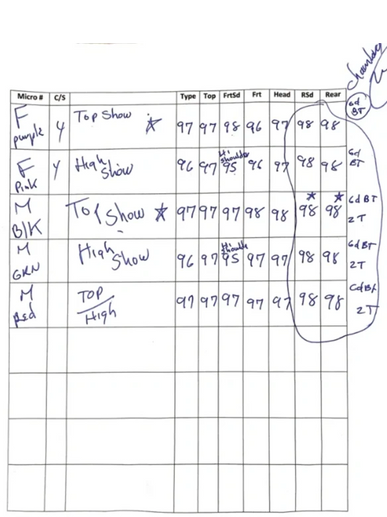 Micro # C/S Type Top FrtSd Frt Head RSd Rear
F purple Y Top Show 97 97 98 96 97 98 98 Gd BT
F Pink Y High Show 96 97 Hi Shoulder 95 96 97 98 98 Gd BT
M Blk Top Show 97 97 97 98 98 98 98 Gd BT 2T
M GRN High Show 96 97 Hi Shoulder 95 97 97 98 98 Gd BT 2T
M Red TOP High 97 97 97 97 97 98 98 Gd BT 2T